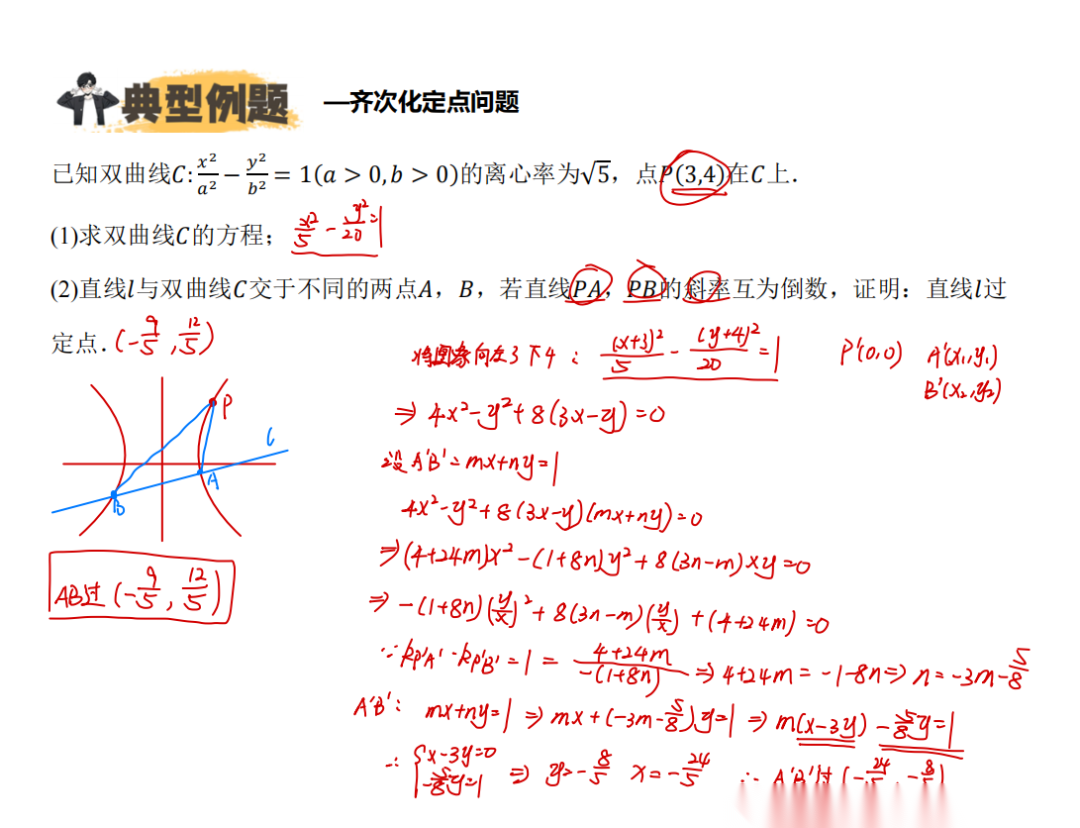 典型例题 —齐次化定点问题
已知双曲线C: x²/a² − y²/b² = 1(a > 0, b > 0)的离心率为√5，点P(3,4)在C上.
(1)求双曲线C的方程； x²/5 − y²/20 = 1
(2)直线l与双曲线C交于不同的两点A，B，若直线PA，PB的斜率互为倒数，证明：直线l过
定点. (−9/5, 12/5)
将图象向左3下4： (x+3)²/5 − (y+4)²/20 = 1 P'(0,0) A'(x₁,y₁)
B'(x₂,y₂)
⇒ 4x²−y²+8(3x−y)=0
设A'B'=mx+ny=1
4x²−y²+8(3x−y)(mx+ny)=0
⇒(4+24m)x²−(1+8n)y²+8(3n−m)xy=0
⇒ −(1+8n)(y/x)²+8(3n−m)(y/x)+(4+24m)=0
∵kP'A'·kP'B'=1= (4+24m)/−(1+8n) ⇒4+24m=−1−8n⇒n=−3m−5/8
A'B': mx+ny=1 ⇒mx+(−3m−5/8)y=1 ⇒m(x−3y)−5/8y=1
∴ {x−3y=0
−5/8y=1 ⇒ y=−8/5 x=−24/5 ∴A'B'过(−24/5,−8
P
l
A
B
AB过(−9/5, 12/5)